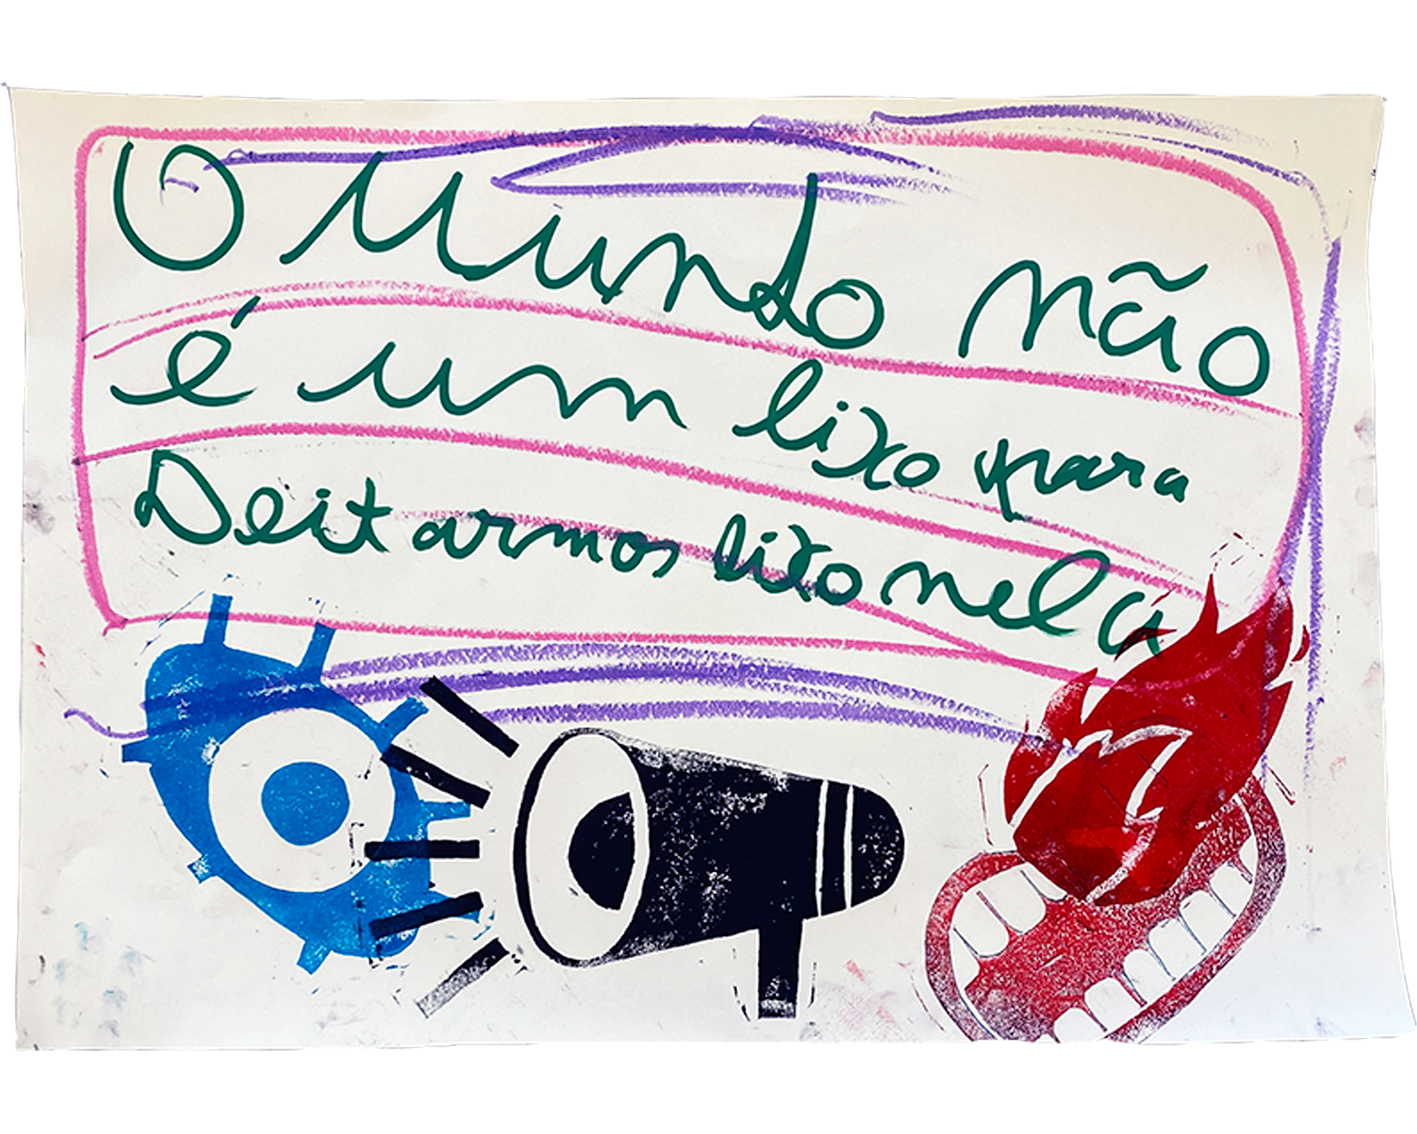 O Mundo não
é um lixo para
Deitarmos lixo nela